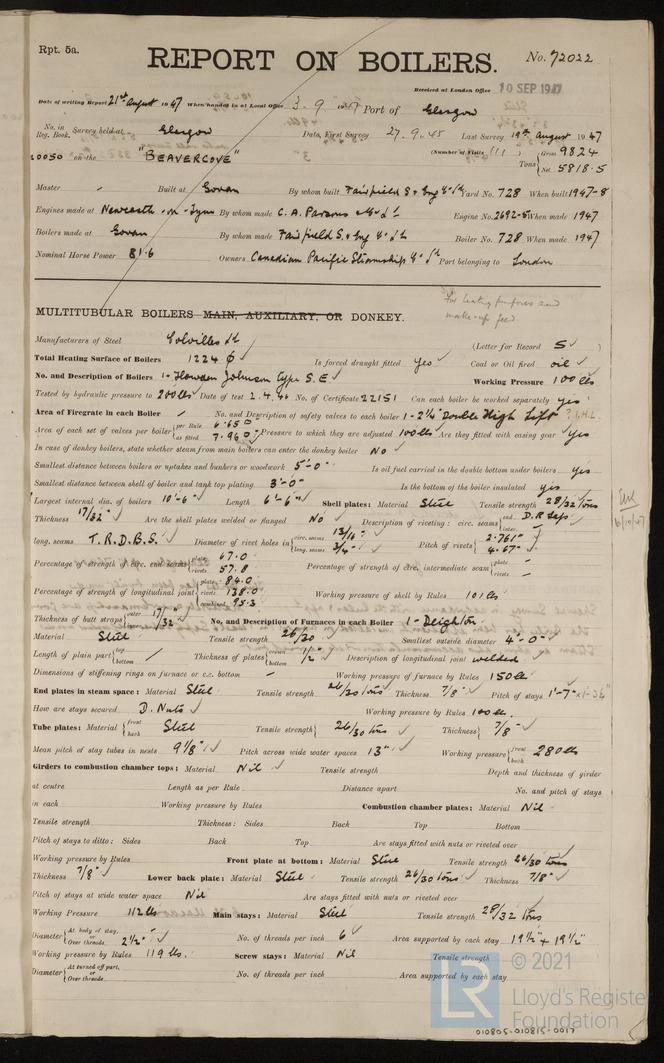 Rpt. 5a.
REPORT ON BOILERS.
No. 72022
Received at London Office 10 SEP 1947
Date of writing Report 21st August 1947 When handed in at Local Office 3.9.1947 Port of Glasgow
No. in Reg. Book. Survey held at Glasgow Date, First Survey 27.9.45 Last Survey 19th August 1947
20050 on the "BEAVERCOVE" (Number of Visits 111) Tons Gross 9824 Net 5818.5
Master / Built at Govan By whom built Fairfield S & Eng Co Ld Yard No. 728 When built 1947-8
Engines made at Newcastle-on-Tyne By whom made C. A. Parsons & Co Ld Engine No. 2692-5 When made 1947
Boilers made at Govan By whom made Fairfield S. & Eng Co Ld Boiler No. 728 When made 1947
Nominal Horse Power 816 Owners Canadian Pacific Steamship Co Ld Port belonging to London
For heating purposes and make-up feed
MULTITUBULAR BOILERS MAIN, AUXILIARY, OR DONKEY.
Manufacturers of Steel Colvilles Ld (Letter for Record S)
Total Heating Surface of Boilers 1224 Is forced draught fitted Yes Coal or Oil fired oil
No. and Description of Boilers 1- Howden Johnson type S.E Working Pressure 100 lbs
Tested by hydraulic pressure to 200 lbs Date of test 2.4.46 No. of Certificate 22151 Can each boiler be worked separately yes
Area of Firegrate in each Boiler / No. and Description of safety valves to each boiler 1 - 2¼" Double High Lift
Area of each set of valves per boiler per Rule 6.65 as fitted 7.96 Pressure to which they are adjusted 100 lbs Are they fitted with easing gear Yes
In case of donkey boilers, state whether steam from main boilers can enter the donkey boiler No
Smallest distance between boilers or uptakes and bunkers or woodwork 5'-0" Is oil fuel carried in the double bottom under boilers yes
Smallest distance between shell of boiler and tank top plating 3'-0" Is the bottom of the boiler insulated yes
Largest internal dia. of boilers 10'-6" Length 6'-6" Shell plates: Material Steel Tensile strength 28/32 tons
Thickness 17/32" Are the shell plates welded or flanged No Description of riveting: circ. seams end D.R Lap inter.
long. seams T.R.D.B.S. Diameter of rivet holes in circ. seams 13/16" long. seams 3/4" Pitch of rivets 2.761" 4.67"
Percentage of strength of circ. end seams plate 67.0 rivets 57.8 Percentage of strength of circ. intermediate seam plate - rivets -
Percentage of strength of longitudinal joint plate 84.0 rivets 138.0 combined 95.3 Working pressure of shell by Rules 101 lbs
Thickness of butt straps outer inner 17/32" No. and Description of Furnaces in each Boiler 1- Deighton
Material Steel Tensile strength 26/30 Smallest outside diameter 4'-0"
Length of plain part top bottom / Thickness of plates crown bottom 1/2" Description of longitudinal joint welded
Dimensions of stiffening rings on furnace or c.c. bottom - Working pressure of furnace by Rules 150 lbs
End plates in steam space: Material Steel Tensile strength 26/30 tons Thickness 7/8" Pitch of stays 1'-7"
How are stays secured D. Nuts Working pressure by Rules 100 lbs.
Tube plates: Material front back Steel Tensile strength 26/30 tons Thickness 7/8"
Mean pitch of stay tubes in nests 9⅛" Pitch across wide water spaces 13" Working pressure front back 280 lbs
Girders to combustion chamber tops: Material Nil Tensile strength Depth and thickness of girder
at centre Length as per Rule Distance apart No. and pitch of stays
in each Working pressure by Rules Combustion chamber plates: Material Nil
Tensile strength Thickness: Sides Back Top Bottom
Pitch of stays to ditto: Sides Back Top Are stays fitted with nuts or riveted over
Working pressure by Rules Front plate at bottom: Material Steel Tensile strength 26/30 tons
Thickness 7/8" Lower back plate: Material Steel Tensile strength 26/30 tons Thickness 7/8"
Pitch of stays at wide water space Nil Are stays fitted with nuts or riveted over
Working Pressure 112 lbs Main stays: Material Steel Tensile strength 28/32 tons
Diameter At body of stay, or Over threads 2½" No. of threads per inch 6 Area supported by each stay 19½" + 19½"
Working pressure by Rules 119 lbs. Screw stays: Material Nil Tensile strength
Diameter At turned off part, or Over threads No. of threads per inch Area supported by each stay
© 2021
LR
Lloyd's Register
Foundation
010805-010815-0017